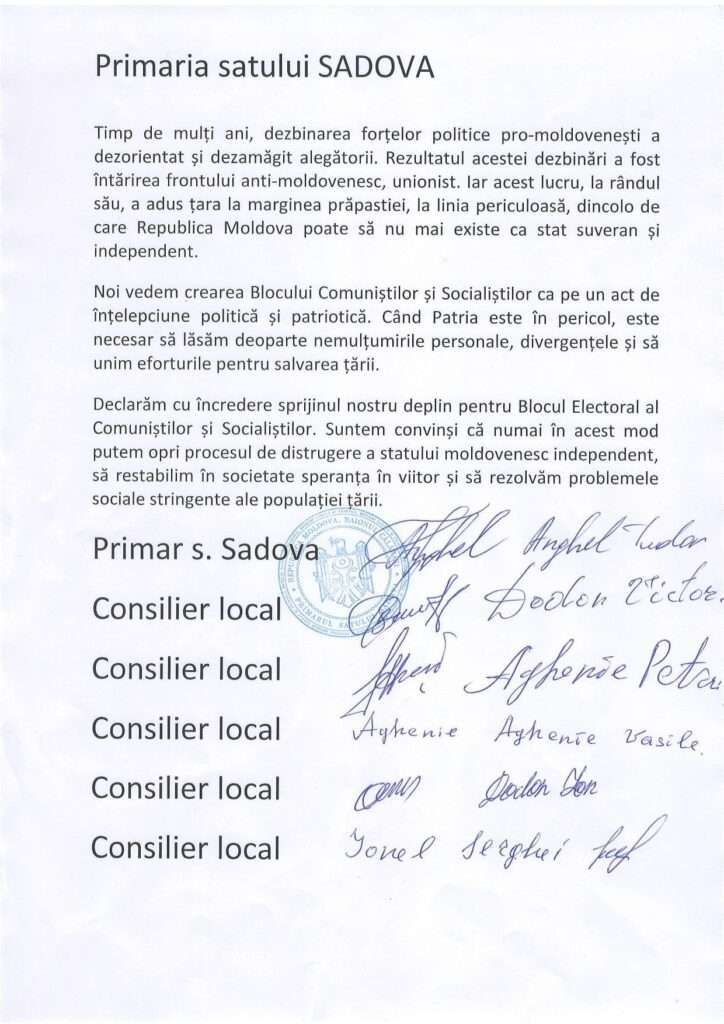 Primaria satului SADOVA
Timp de mulți ani, dezbinarea forțelor politice pro-moldovenești a
dezorientat și dezamăgit alegătorii. Rezultatul acestei dezbinări a fost
întărirea frontului anti-moldovenesc, unionist. Iar acest lucru, la rândul
său, a adus țara la marginea prăpastiei, la linia periculoasă, dincolo de
care Republica Moldova poate să nu mai existe ca stat suveran și
independent.
Noi vedem crearea Blocului Comuniștilor și Socialiștilor ca pe un act de
înțelepciune politică și patriotică. Când Patria este în pericol, este
necesar să lăsăm deoparte nemulțumirile personale, divergențele și să
unim eforturile pentru salvarea țării.
Declarăm cu încredere sprijinul nostru deplin pentru Blocul Electoral al
Comuniștilor și Socialiștilor. Suntem convinși că numai în acest mod
putem opri procesul de distrugere a statului moldovenesc independent,
să restabilim în societate speranța în viitor și să rezolvăm problemele
sociale stringente ale populației țării.
Primar s. Sadova Anghel Anghel Tudor
REPUBLICA MOLDOVA, RAIONUL
PRIMARUL SATULUI
Consilier local Dodon Victor.
Consilier local Aghenie Petru
Consilier local Aghenie Aghenie Vasile.
Consilier local Dodon Ion
Consilier local Ionel Serghei